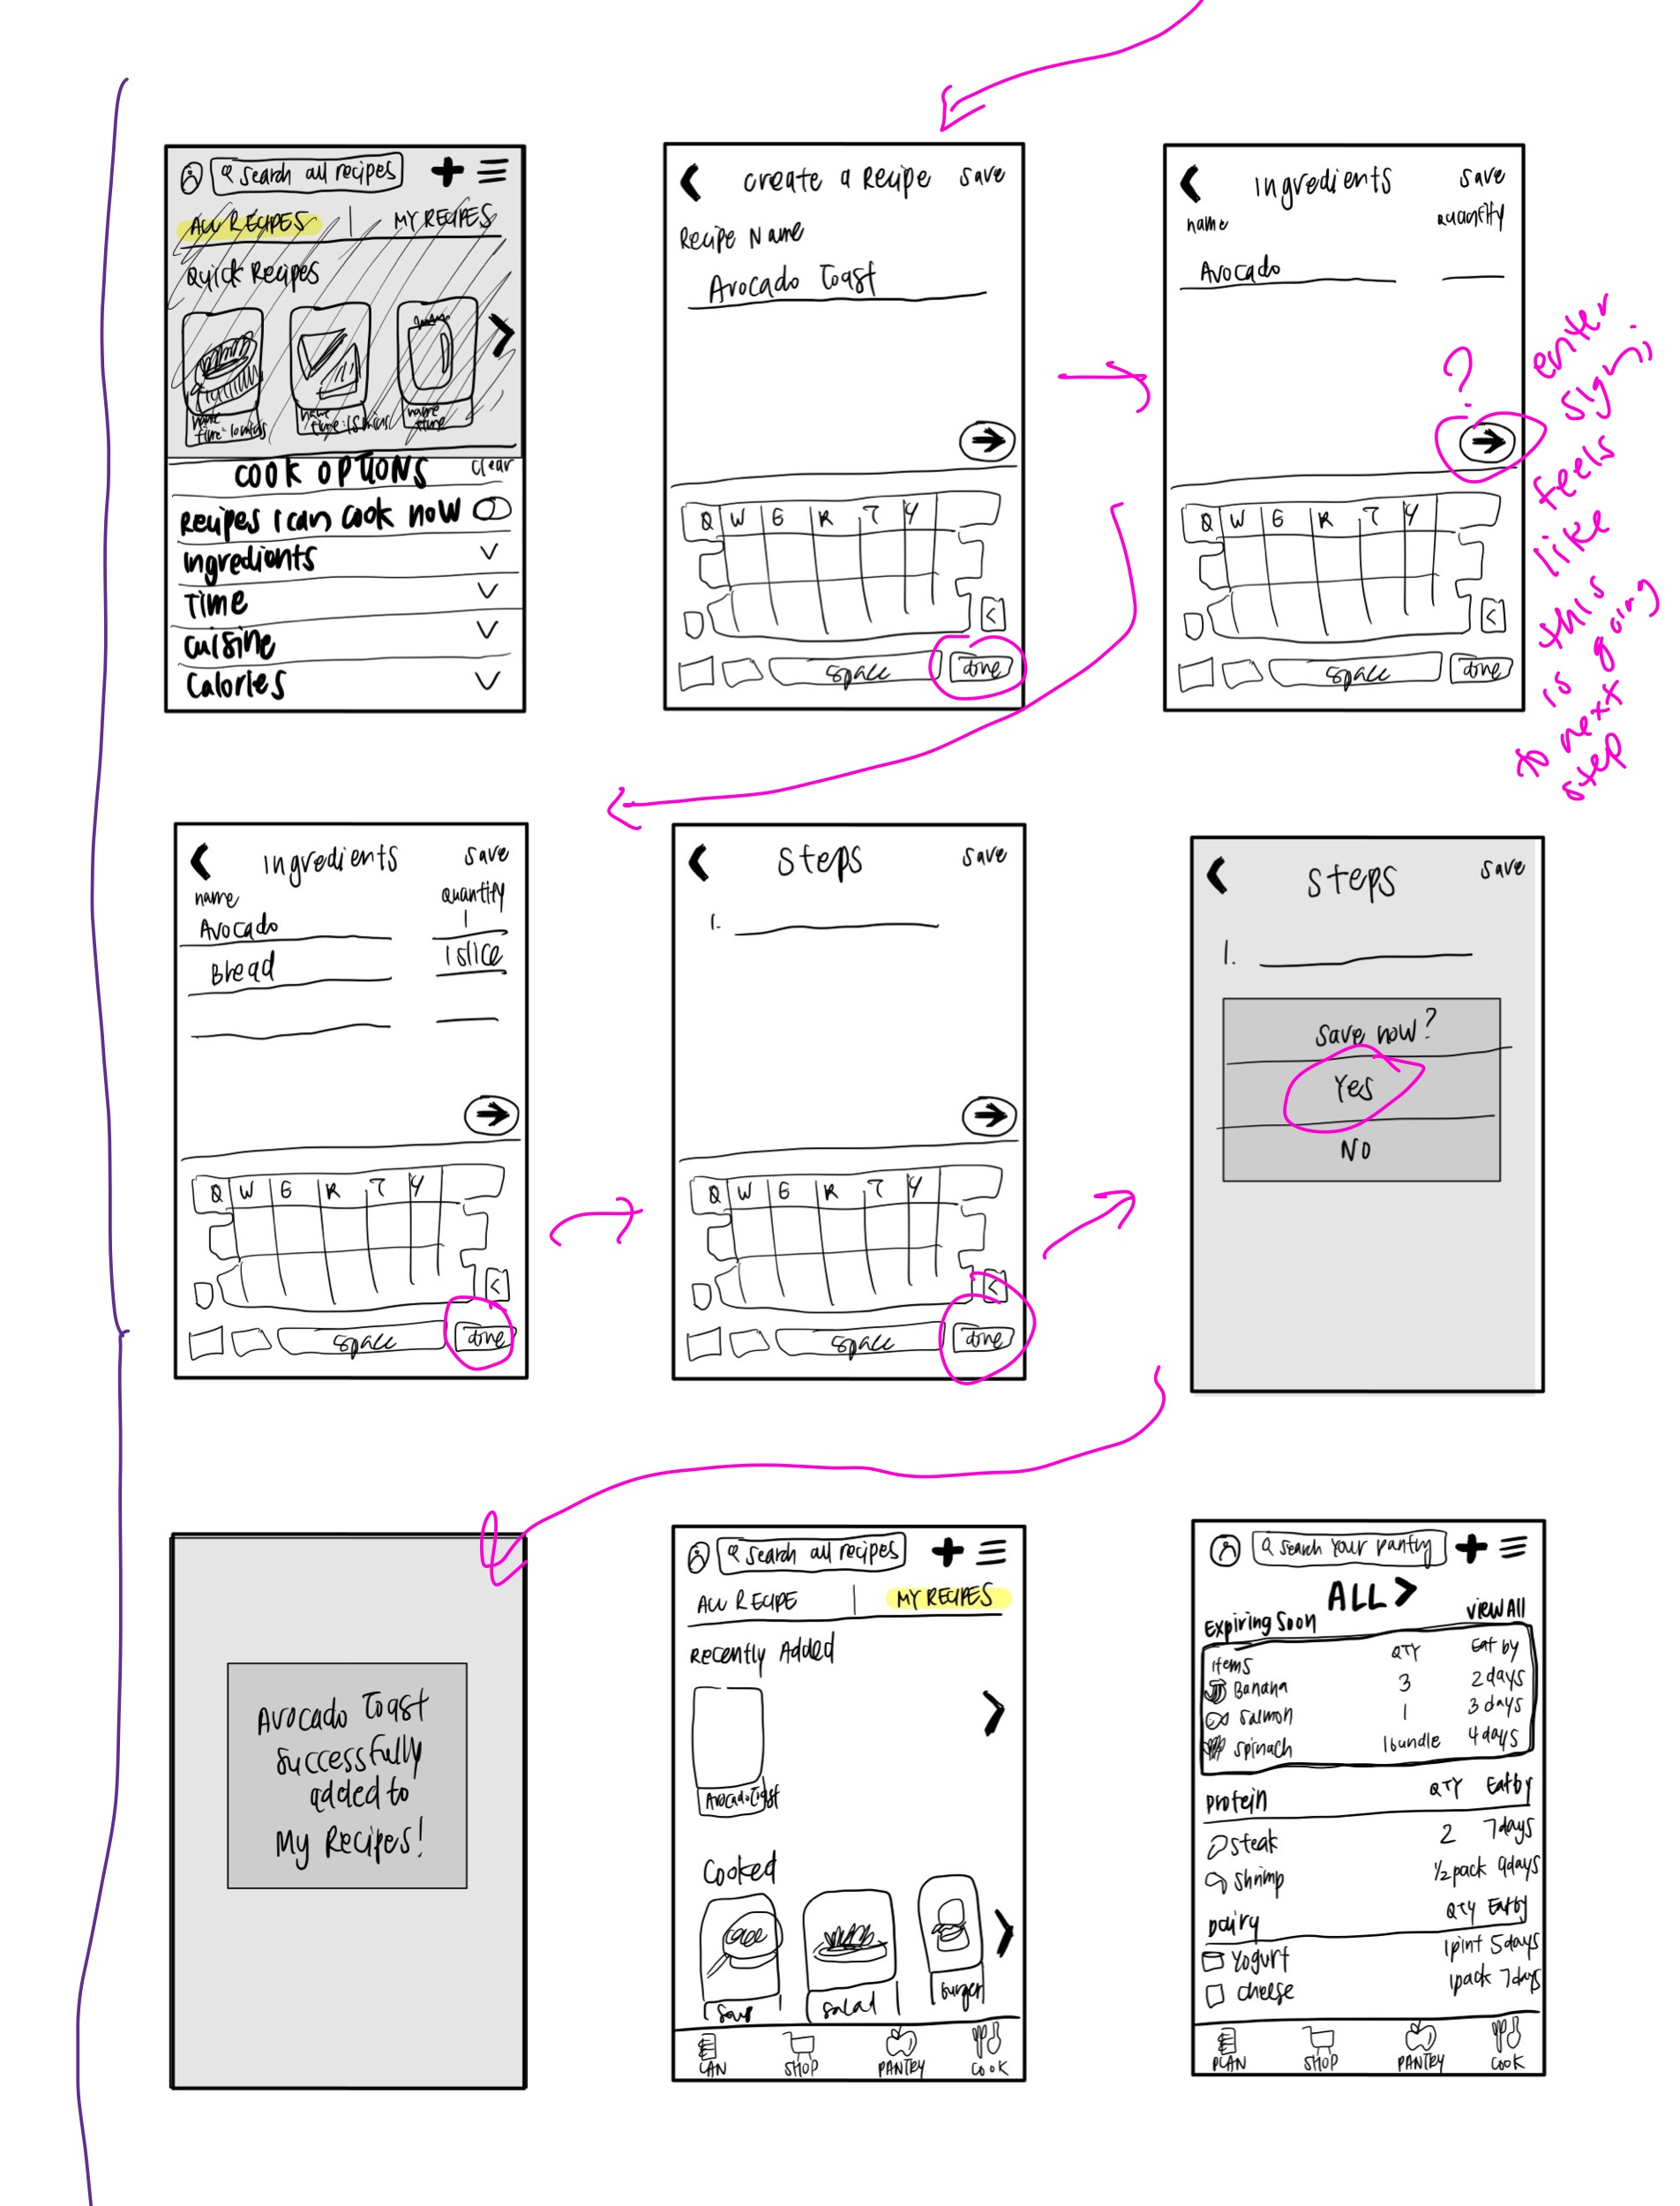 Search all recipes
ALL RECIPES | MY RECIPES
Quick Recipes
name
time: 10 mins
name
time: 15 mins
name
time
COOK OPTIONS
Clear
Recipes I can cook now
Ingredients
Time
Cuisine
Calories
Create a Recipe
Save
Recipe Name
Avocado Toast
Q W E R T Y
space
done
Ingredients
Save
name
Quantity
Avocado
?
enter sign;
feels
like
is this
going
to next
step
Q W E R T Y
space
done
Ingredients
Save
name
Quantity
Avocado
1
Bread
1 slice
Q W E R T Y
space
done
Steps
Save
1.
Q W E R T Y
space
done
Steps
Save
1.
Save now?
Yes
No
Avocado Toast
successfully
added to
My Recipes!
Search all recipes
ALL RECIPE | MY RECIPES
Recently Added
Avocado Toast
Cooked
Soup
Salad
Burger
SHOP
PANTRY
COOK
Search Your pantry
ALL >
Expiring Soon
View All
Items QTY Eat by
Banana 3 2 days
Salmon 1 3 days
Spinach 1 bundle 4 days
Protein QTY Eat by
Steak 2 7 days
Shrimp 1/2 pack 9 days
Dairy QTY Eat by
Yogurt 1 pint 5 days
Cheese 1 pack 7 days
PLAN
SHOP
PANTRY
COOK